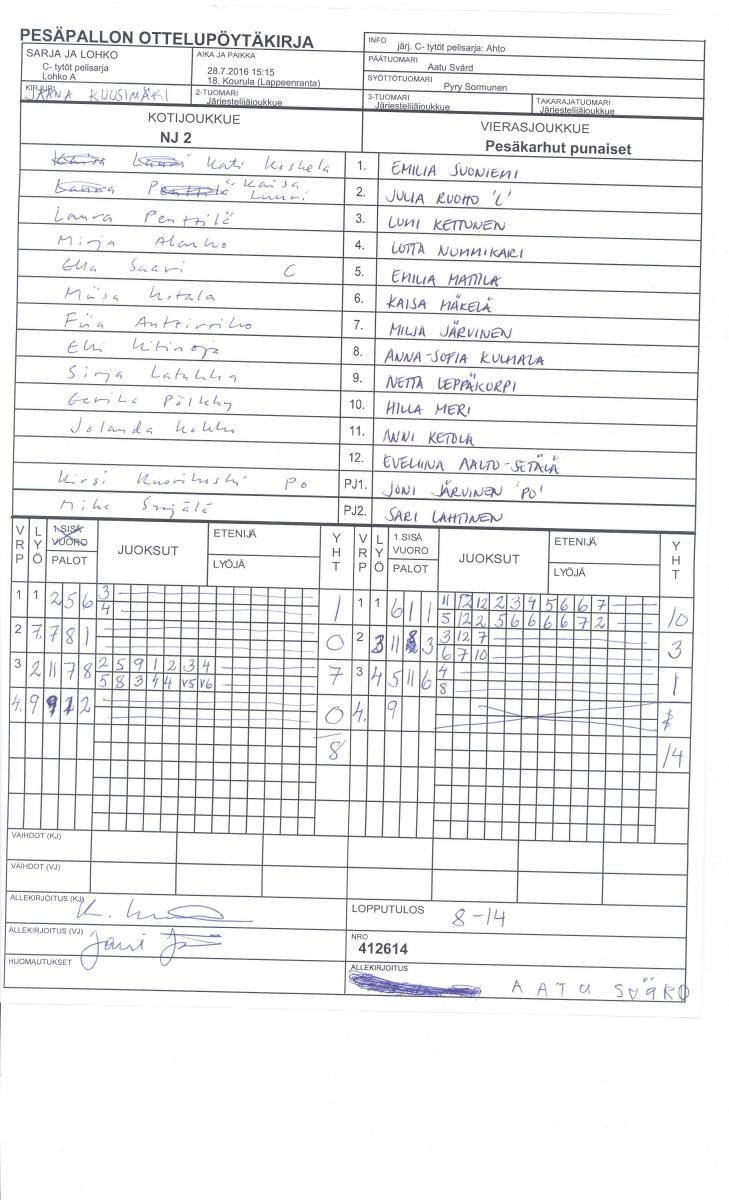 PESÄPALLON OTTELUPÖYTÄKIRJA
INFO järj. C- tytöt pelisarja: Ahto
SARJA JA LOHKO
C- tytöt pelisarja
Lohko A
AIKA JA PAIKKA
28.7.2016 15:15
18. Kourula (Lappeenranta)
PÄÄTUOMARI Aatu Svärd
SYÖTTÖTUOMARI Pyry Sormunen
KIRJURI JAANA KUUSIMÄKI
2-TUOMARI Järjestelijäjoukkue
3-TUOMARI Järjestelijäjoukkue
TAKARAJATUOMARI Järjestelijäjoukkue
KOTIJOUKKUE
NJ 2
VIERASJOUKKUE
Pesäkarhut punaiset
Kati Koskela 1. EMILIA SUONIEMI
Kaisa Luuri 2. JULIA RUOHO 'L'
Laura Penttilä 3. LUMI KETTUNEN
Mirja Alanko 4. LOTTA NUMMIKARI
Ella Saari C 5. EMILIA MATTILA
Miisa Kotala 6. KAISA MÄKELÄ
Fiia Anttiroiko 7. MILJA JÄRVINEN
Elli Kitinoja 8. ANNA-SOFIA KULMALA
Sirja Latukka 9. NETTA LEPPÄKORPI
Gerika Pölkky 10. HILLA MERI
Jolanda Kokko 11. ANNI KETOLA
12. EVELIINA AALTO-SETÄLÄ
Kirsi Kuorikoski PO PJ1. JONI JÄRVINEN 'PO'
Mika PJ2. SARI LAHTINEN
VRP LYÖ 1.SISÄ VUORO PALOT JUOKSUT ETENIJÄ LYÖJÄ YHT VRP LYÖ 1.SISÄ VUORO PALOT JUOKSUT ETENIJÄ LYÖJÄ YHT
1 1 2 5 6 3 1 1 1 6 1 1 11 12 12 2 3 4 5 6 6 7 10
4 5 12 2 5 6 6 6 6 7 2
2 7. 7 8 1 0 2 3 11 8 3 3 12 7 3
6 7 10
3 2 11 7 8 2 5 9 1 2 3 4 7 3 4 5 11 6 4 1
5 8 3 4 4 v5 v6 8
4. 9 9 1 2 0 4. 9
8 14
VAIHDOT (KJ)
VAIHDOT (VJ)
ALLEKIRJOITUS (KJ)
LOPPUTULOS 8-14
ALLEKIRJOITUS (VJ)
NRO
412614
HUOMAUTUKSET
ALLEKIRJOITUS AATU SVÄRD